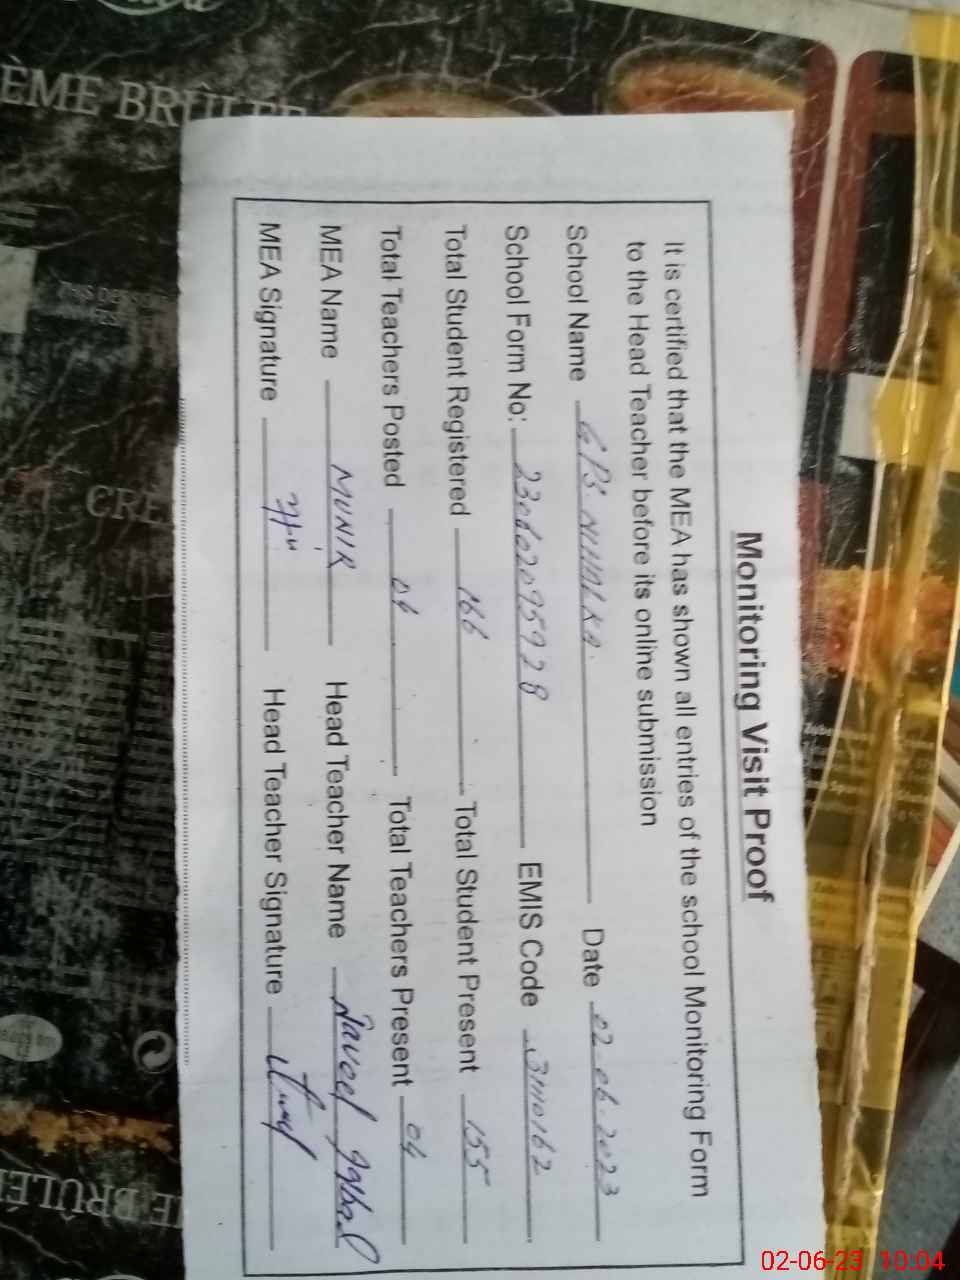 Monitoring Visit Proof
It is certified that the MEA has shown all entries of the school Monitoring Form
to the Head Teacher before its online submission
School Name GPS Date 02-06-2023
School Form No: 23062095928 EMIS Code 31110162
Total Student Registered 166 Total Student Present 155
Total Teachers Posted 04 Total Teachers Present 04
MEA Name MUNIR Head Teacher Name Javeel Iqbal
MEA Signature Head Teacher Signature
ÈME BRÛLÉE
CRE
E BRÛLÉ
02-06-23 10:04